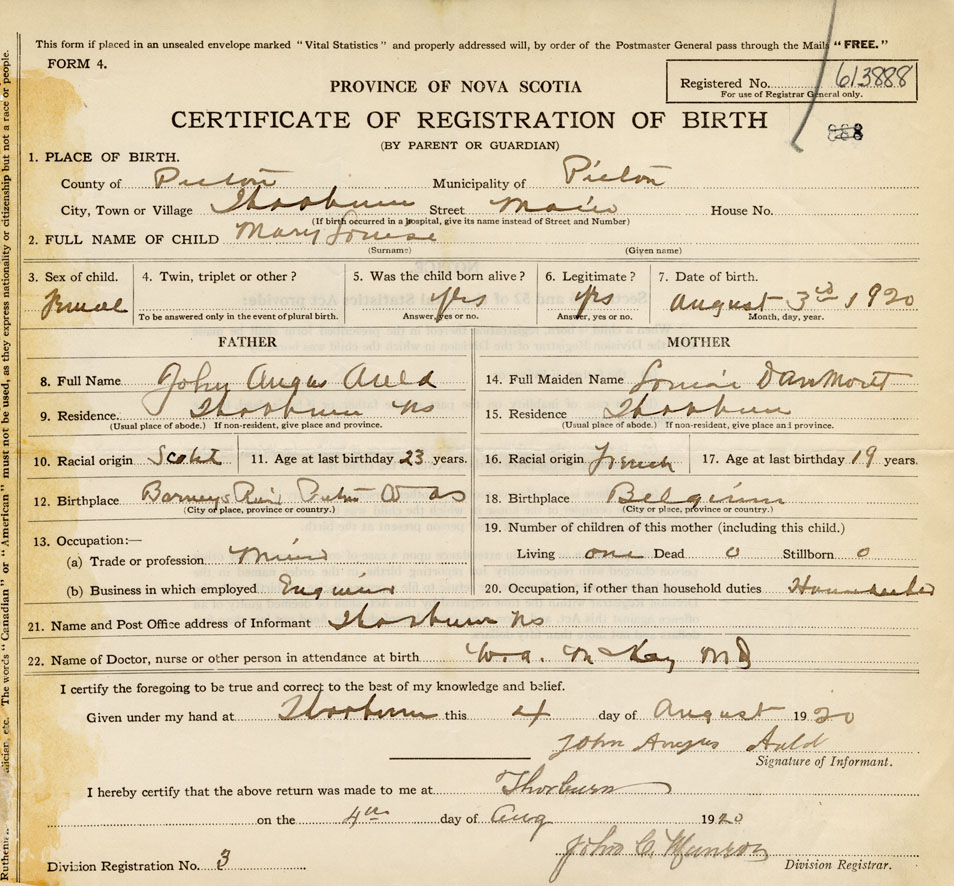 This form if placed in an unsealed envelope marked "Vital Statistics" and properly addressed will, by order of the Postmaster General pass through the Mails "FREE."
FORM 4.
PROVINCE OF NOVA SCOTIA
Registered No. 613888
For use of Registrar General only.
CERTIFICATE OF REGISTRATION OF BIRTH
888
(BY PARENT OR GUARDIAN)
1. PLACE OF BIRTH.
County of Pictou Municipality of Pictou
City, Town or Village Thorburn Street Main House No.
(If birth occurred in a hospital, give its name instead of Street and Number)
2. FULL NAME OF CHILD Mary Louise
(Surname) (Given name)
3. Sex of child. 4. Twin, triplet or other? 5. Was the child born alive? 6. Legitimate? 7. Date of birth.
Female yes yes August 3rd 1920
To be answered only in the event of plural birth. Answer, yes or no. Answer, yes or no. Month, day, year.
FATHER MOTHER
8. Full Name John Angus Auld 14. Full Maiden Name
9. Residence. Thorburn NS 15. Residence Thorburn
(Usual place of abode.) If non-resident, give place and province. (Usual place of abode.) If non-resident, give place and province.
10. Racial origin 11. Age at last birthday 23 years. 16. Racial origin French 17. Age at last birthday 19 years.
12. Birthplace Barneys River Pictou 18. Birthplace Belgium
(City or place, province or country.) (City or place, province or country.)
19. Number of children of this mother (including this child.)
13. Occupation:—
(a) Trade or profession Living one Dead 0 Stillborn 0
(b) Business in which employed 20. Occupation, if other than household duties
21. Name and Post Office address of Informant Thorburn NS
22. Name of Doctor, nurse or other person in attendance at birth W. A. McKay MD
I certify the foregoing to be true and correct to the best of my knowledge and belief.
Given under my hand at Thorburn this 4 day of August 1920
John Angus Auld
Signature of Informant.
I hereby certify that the above return was made to me at Thorburn
on the 4th day of Aug 1920
John C. Munroe
Division Registration No. 3 Division Registrar.
The words "Canadian" or "American" must not be used, as they express nationality or citizenship but not a race or people.